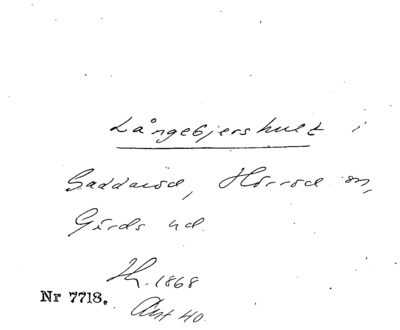 Långebjershult i
Gaddaröd, Hörröd sn,
Gärds hd.
H. 1868
Nr 7718.
Avt 40.